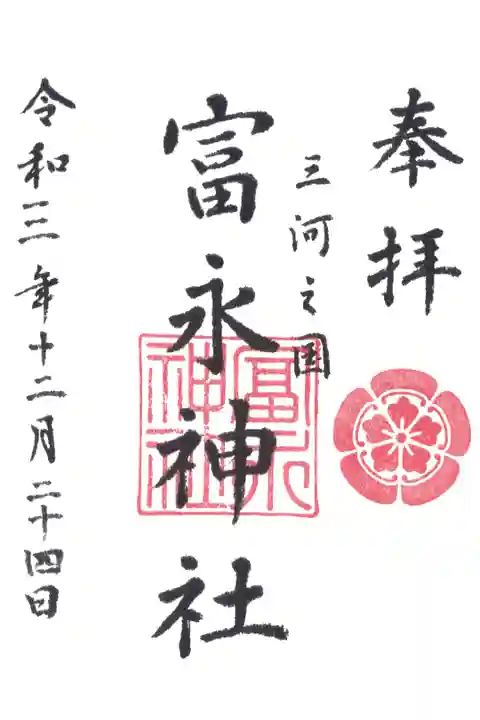 奉拝
三河之国
富永神社
富永神社
令和三年十二月二十四日